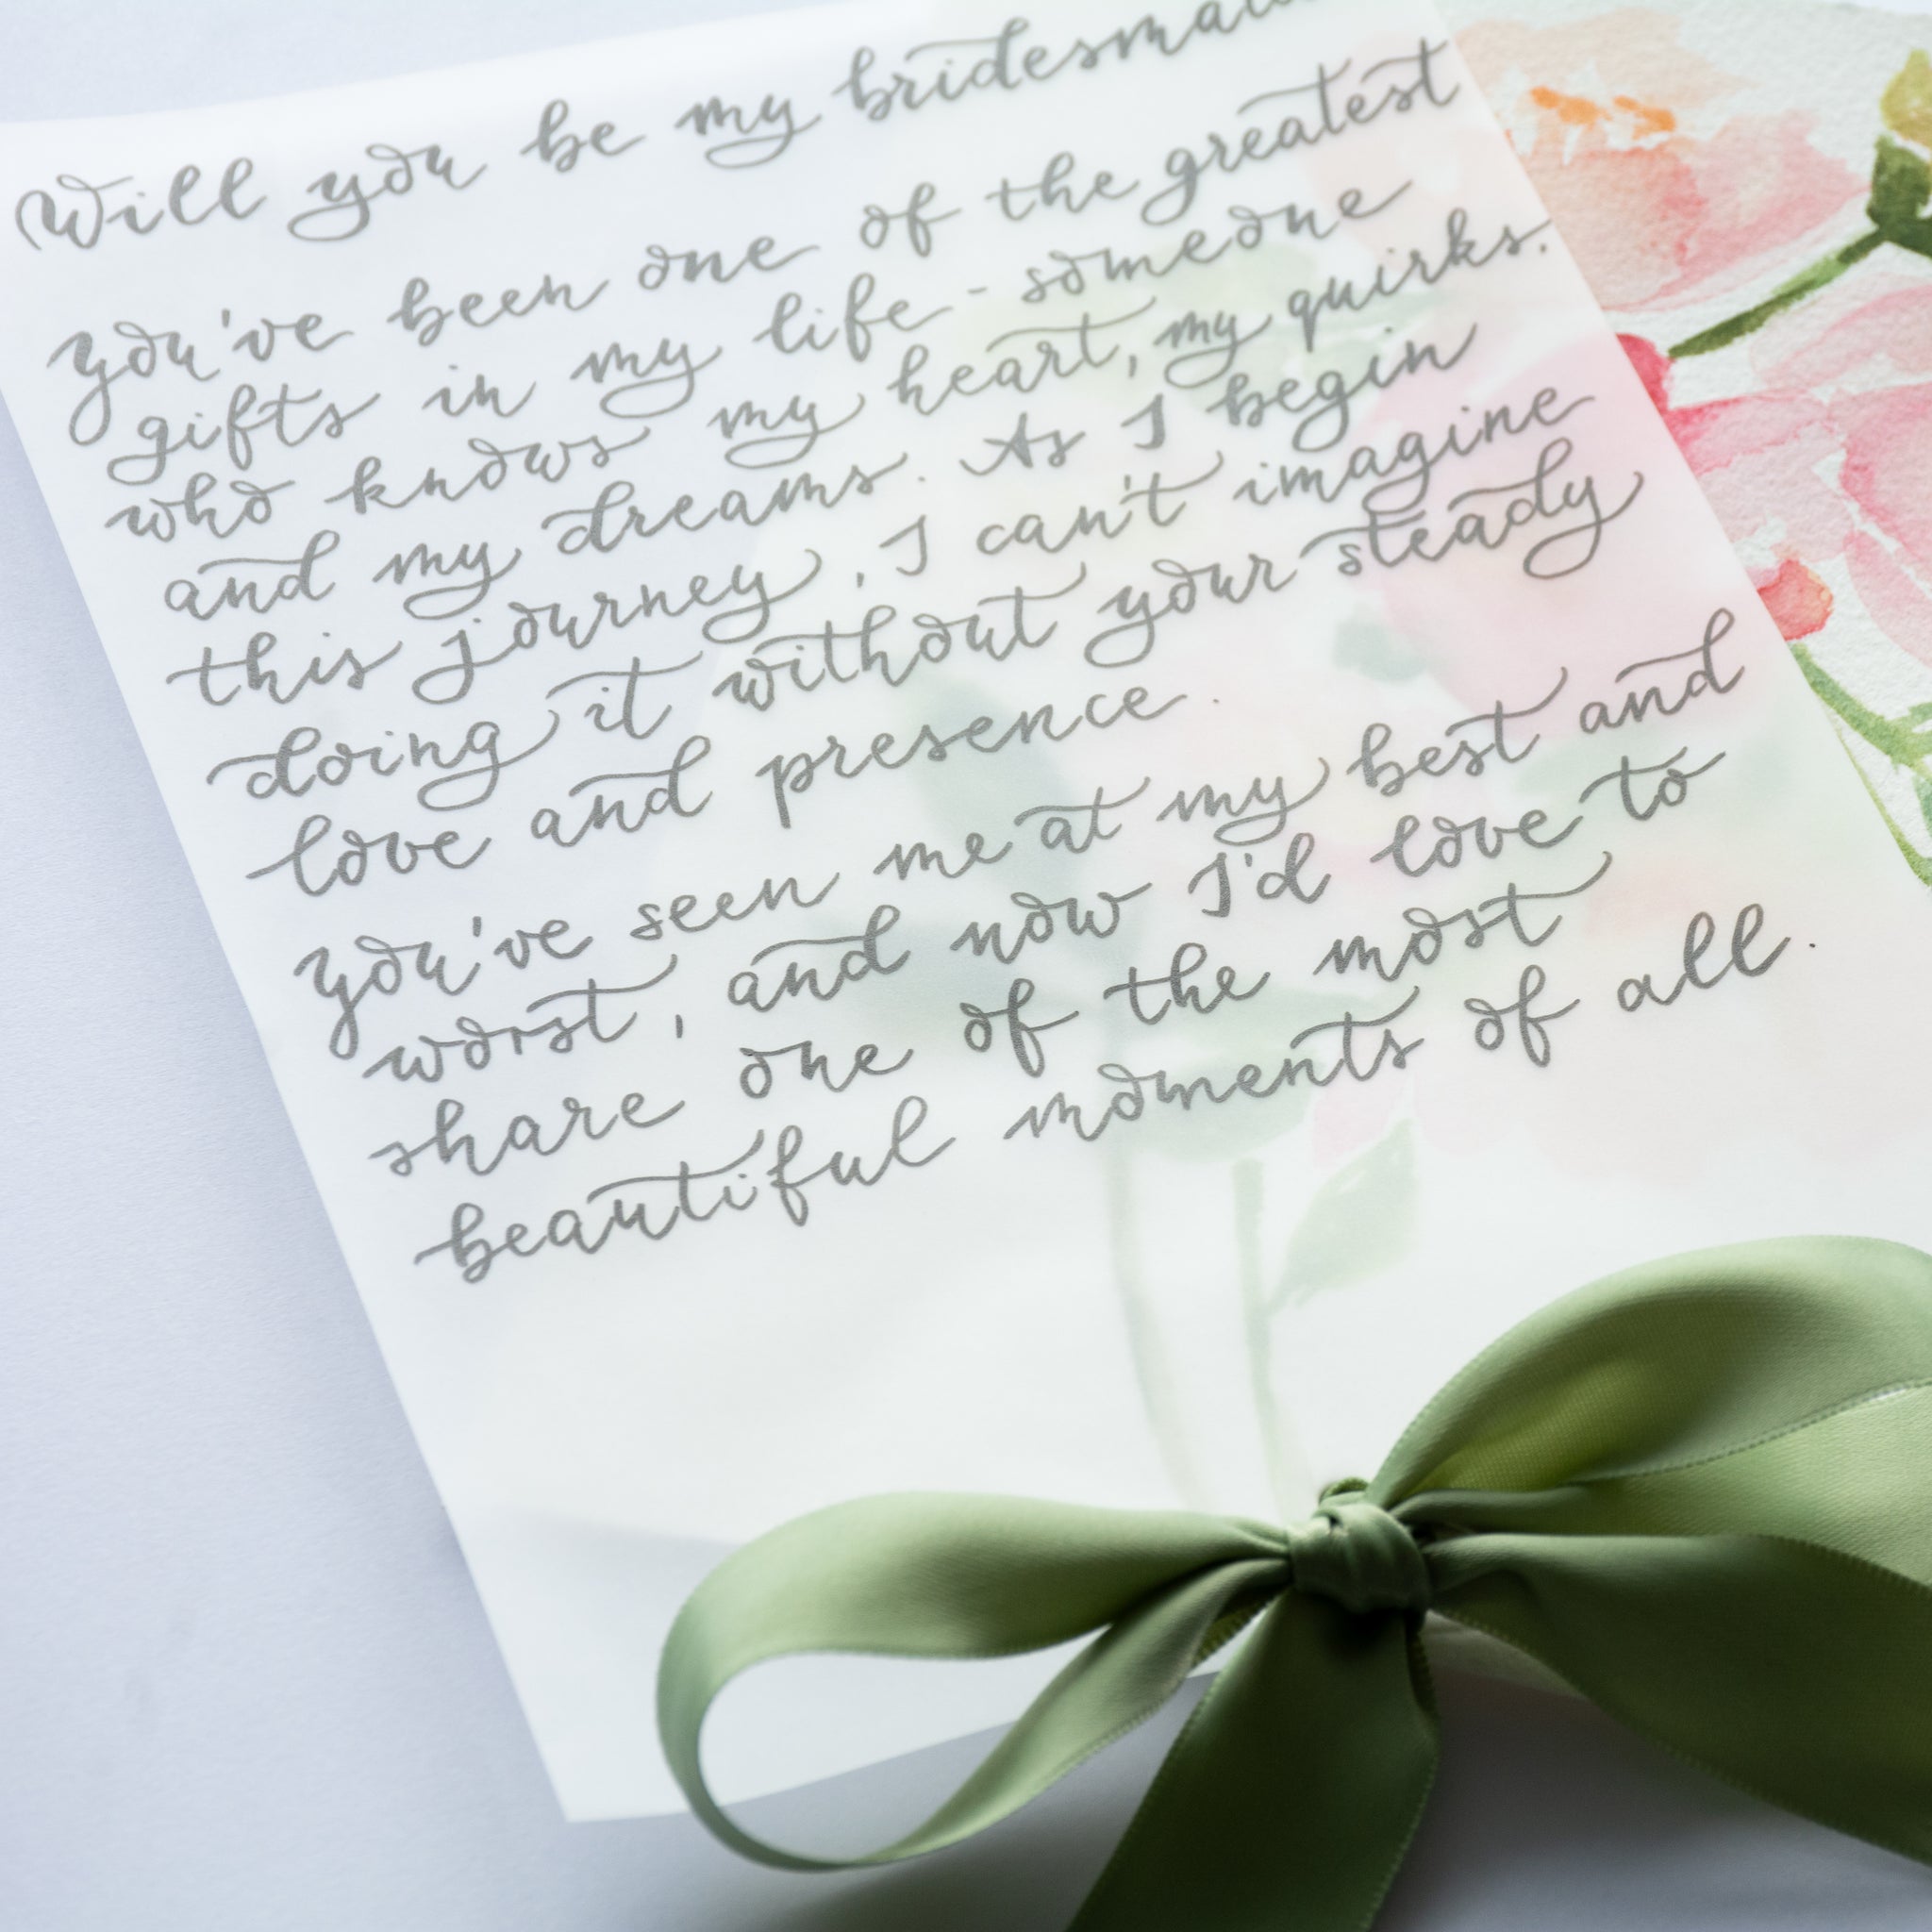 Will you be my bridesmaid
You've been one of the greatest
gifts in my life - someone
who knows my heart, my quirks.
and my dreams. As I begin
this journey, I can't imagine
doing it without your steady
love and presence.
You've seen me at my best and
worst, and now I'd love to
share one of the most
beautiful moments of all.